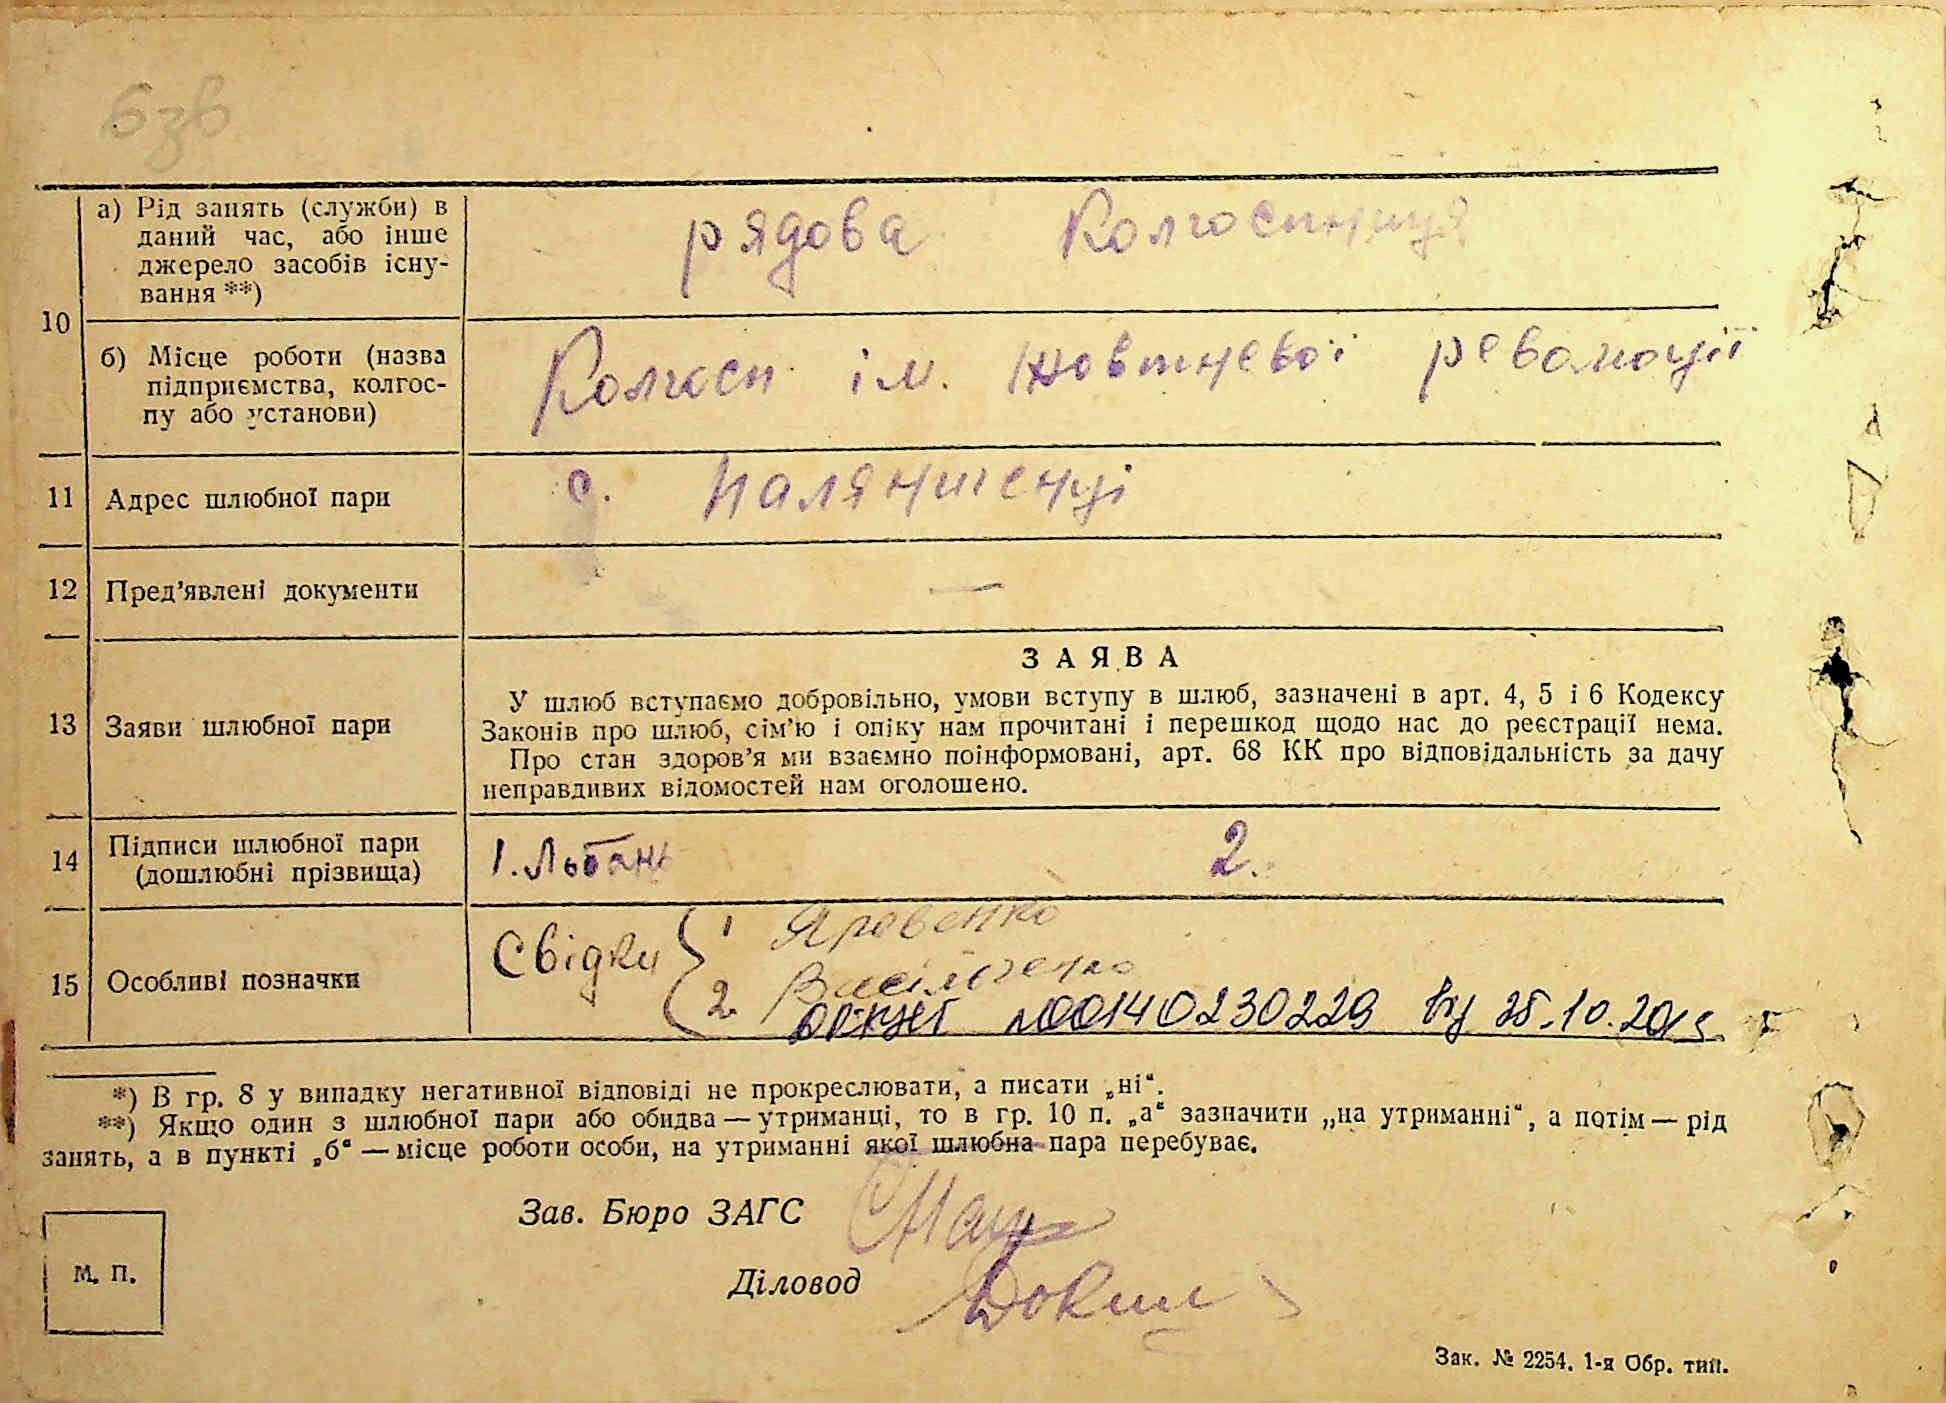 бзв
а) Рід занять (служби) в
даний час, або інше
джерело засобів існу-
вання **)
рядова Колгоспниця
10
б) Місце роботи (назва
підприємства, колгос-
пу або установи)
Колгосп ім. Жовтневої революції
11 Адрес шлюбної пари
с. Паляниченці
12 Пред’явлені документи —
13 Заяви шлюбної пари
ЗАЯВА
У шлюб вступаємо добровільно, умови вступу в шлюб, зазначені в арт. 4, 5 і 6 Кодексу
Законів про шлюб, сім’ю і опіку нам прочитані і перешкод щодо нас до реєстрації нема.
Про стан здоров’я ми взаємно поінформовані, арт. 68 КК про відповідальність за дачу
неправдивих відомостей нам оголошено.
14 Підписи шлюбної пари
(дошлюбні прізвища)
1. 2.
15 Особливі позначки
Свідки 1 Яровенко
2. Васільченко
№00140230229 від 25.10.201
*) В гр. 8 у випадку негативної відповіді не прокреслювати, а писати „ні“.
**) Якщо один з шлюбної пари або обидва — утриманці, то в гр. 10 п. „а“ зазначити „на утриманні“, а потім — рід
занять, а в пункті „б“ — місце роботи особи, на утриманні якої шлюбна пара перебуває.
Зав. Бюро ЗАГС
Діловод
М. П.
Зак. № 2254. 1-я Обр. тип.